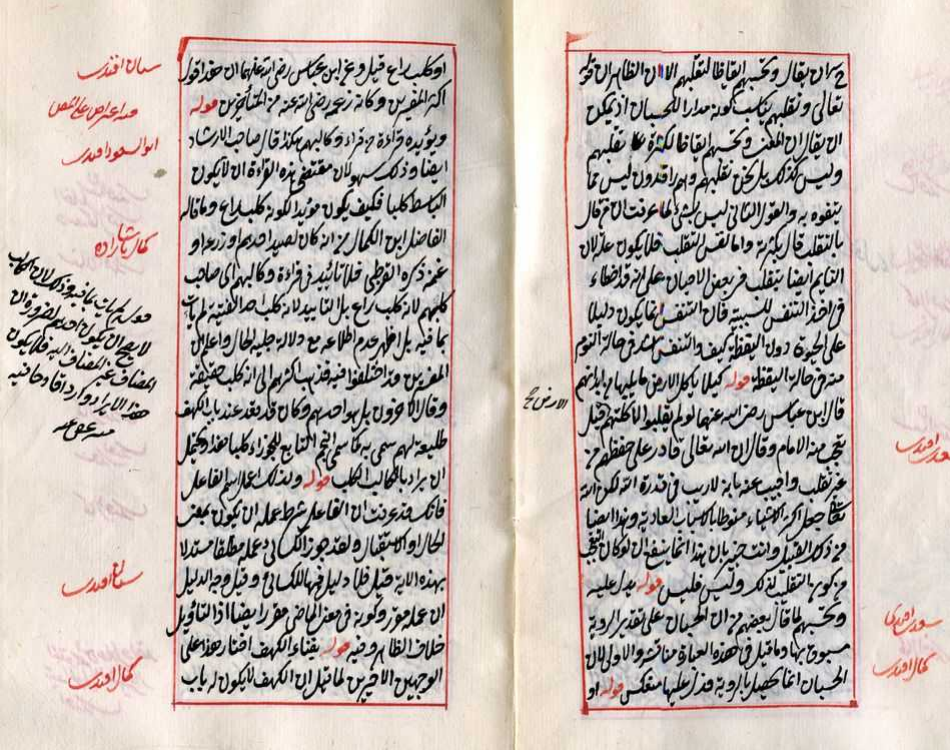 ان يقال وتحسبهم ايقاظا لتقلبهم الا ان الظاهر ان قوله
تعالى ونقلبهم يناسب كونه مدارا للحسبان اذ يمكن
ان يقال ان المعنى وتحسبهم ايقاظا لكثرة تقلبهم
وليس كذلك بل نحن نقلبهم وهم راقدون ليس مما
يتفوه به والقول الثاني ليس بشيء لما عرفت ان من قال
بالتقلب قال بكثرته واما نفس التقلب فلا يكون علة لان
النايم ايضا يتقلب في بعض الاحيان على انه قد اخطاء
في اخذ التنفس للسببية فان التنفس انما يكون دليلا
على الحيوة دون اليقظة كيف والتنفس في حالة النوم
منه في حالة اليقظة قوله كيلا ياكل الارض ما يليها من ابدانهم
قال ابن عباس رضي الله عنهما لو لم يقلبوا لاكلتهم قيل
تعجب منه الامام وقال ان الله تعالى قادر على حفظهم من
غير تقلب واجيب عنه بانه لا ريب في قدرة الله لكن الله
تعالى جعل اكثر الاشياء منوطا بالاسباب العادية وهذا ايضا
من ذلك القبيل وانت خبير بان هذا انما ينفع ان لو كان التعجب
من كون التقلب لذلك وليس فليس قوله يدل عليه
وتحسبهم لما قال بعضهم من ان الحسبان على تقدير الرؤية
مسبوق بها وما قيل في هذه العبارة مناقشة والاولى لان
الحسبان انما يحصل بالروية فدل عليها منعكس قوله او
الارض صح
سعدي افندى
سعدي افندى
كمال افندى
او كلب راع قيل وعن ابن عباس رضي الله عنهما ان هذا قول
اكثر المفسرين وكانه زعمه رضي الله عنه من المتأخرين قوله
ويؤيده قراءة من قراء وكالبهم هكذا قال صاحب الارشاد
ايضا وذلك سهو لان مقتضى هذه القراءة ان لا يكون
الباسط كلبا فكيف يكون مؤيدا لكونه كلب راع وما قاله
الفاضل ابن الكمال من انه كان لصيد احدهم او زرعه او
غنمه ذكره القرطبي فلا تائيد في قراءة وكالبهم اي صاحب
كلبهم لانه كلب راع بل التاييد لانه كلب احد الفتية لم يات
بما فيه بل اظهر عدم اطلاعه مع دلالة جلية الحال واعلم ان
المفسرين قد اختلفوا فيه فذهب اكثرهم الى انه كلب حقيقة
وقال الاخرون بل هو احدهم وكان قد قعد عند باب الكهف
طليعة لهم سمي به كما سمي النجم التابع للجوزاء كلبا هذا ويحتمل
ان يراد بالكالب الكلب قوله ولذلك اعمل اسم الفاعل
فانك قد عرفت ان الفاعل شرط عمله ان يكون بمعنى
الحال او الاستقبال ولقد جوز الكسائي عمله مطلقا مستدلا
بهذه الاية قيل فلا دليل فيها للكسائي وقيل وجه الدليل
ان عمله مقرر وكونه في معنى الماضي مقرر ايضا اذ التأويل
خلاف الظاهر وفيه قوله بفناء الكهف اختار هذا على
الوجهين الاخيرين لما قيل ان الكهف لا يكون له باب
سنان افندى
ابو السعود افندى
كمال پاشا زاده
لا يصح ان يكون احدهم لضرورة ان
المضاف غير المضاف اليه فلا يكون
سنان افندى
كمال افندى